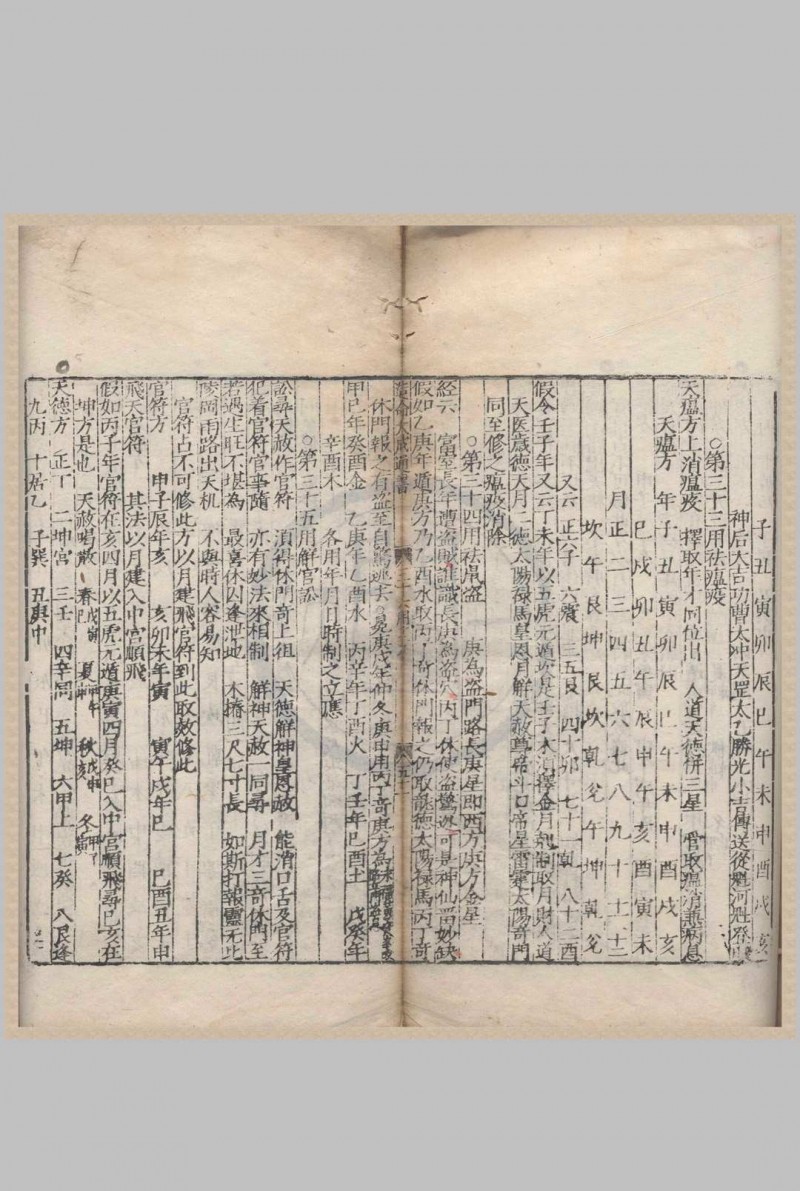 子丑寅卯辰巳午未申酉戌亥
神后大吉功曹太冲天罡太乙勝光小吉傳送從魁河魁登明
○第三十三用祛瘟疫
天瘟方上消瘟疫 擇取年才同位出 人道天德併三星 管取瘟消無病息
天瘟方 年子丑寅卯辰巳午未申酉戌亥
巳戌卯丑午辰申午亥酉寅未
月正二三四五六七八九十十一十二
坎午艮坤艮坎乾兌午坤乾兌
又云正六午 六癸 三五艮 四十卯 七十一乾 八十二酉
假令壬子年又云丁未年以五虎元遁
天医歲德天月二德太陽祿馬皇恩月解天赦尊帝斗口帝星雷霆太陽奇門
同至修之瘟疫消除
○第三十四用祛鬼盗 庚為盗門路長庚星即西方庚方金星
經云 富室長年遭盗賊誰識長庚為盗穴丙丁休使盗驚迷可是神仙留妙缺
假如乙庚年遁庚方乃乙酉水取丙丁奇休門報之仍取龍德太陽祿馬丙丁奇
造命大成通書
休門報之有盗至自驚迷去
甲巳年癸酉金 乙庚年乙酉水 丙辛年丁酉火 丁壬年巳酉土 戊癸年
辛酉木 各用年月日時制之立應
○第三十五用解官訟
訟尋天赦作官符 須得休門奇上徂 天德解神皇恩赦 能消口舌及官符
犯着官符官事隨 亦有妙法來相制 解神天赦一同尋 月才三奇休門至
若遇生旺不堪為 最喜休囚逢泄地 木樁三尺七寸長 如斯打報靈无比
陵岡雨路出天机 不與時人容易知
官符占不可修此方以月建飛官符到此取效修此
官符方 申子辰年亥 亥卯未年寅 寅午戌年巳 巳酉丑年申
飛天官符 其法以月建入中宮順飛
假如丙子年官符在亥四月以五虎元遁庚寅四月癸巳入中宮順飛尋巳亥在
坤方是也 天赦唱散 春戊寅 夏甲午 秋戊申 冬甲子
天德方 正丁 二坤宮 三壬 四辛同 五坤 六甲上 七癸 八艮逢
九丙 十居乙 子巽 丑庚中